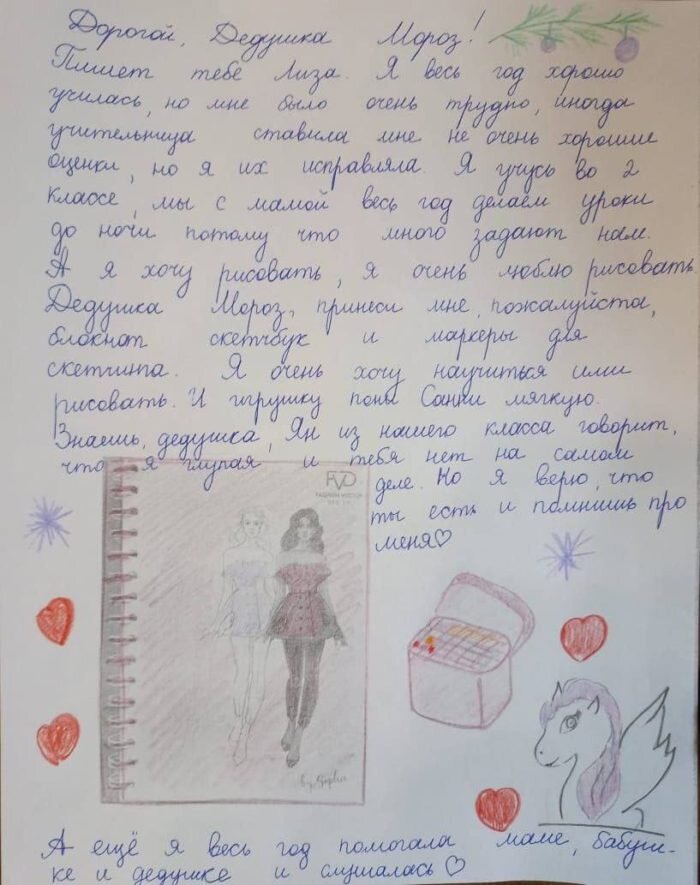 Дорогой, Дедушка Мороз!
Пишет тебе Лиза. Я весь год хорошо
училась, но мне было очень трудно, иногда
учительница ставила мне не очень хорошие
оценки, но я их исправляла. Я учусь во 2
классе, мы с мамой весь год делаем уроки
до ночи потому что много задают нам.
А я хочу рисовать, я очень люблю рисовать.
Дедушка Мороз, принеси мне, пожалуйста,
блокнот скетчбук и маркеры для
скетчинга. Я очень хочу научиться ими
рисовать. И игрушку пони Санни мягкую.
Знаешь, дедушка, Ян из нашего класса говорит,
что я глупая и тебя нет на самом
деле. Но я верю, что
ты есть и помнишь про
меня♡
FVD
by Sophie
А ещё я весь год помогала маме, бабуш-
ке и дедушке и слушалась♡